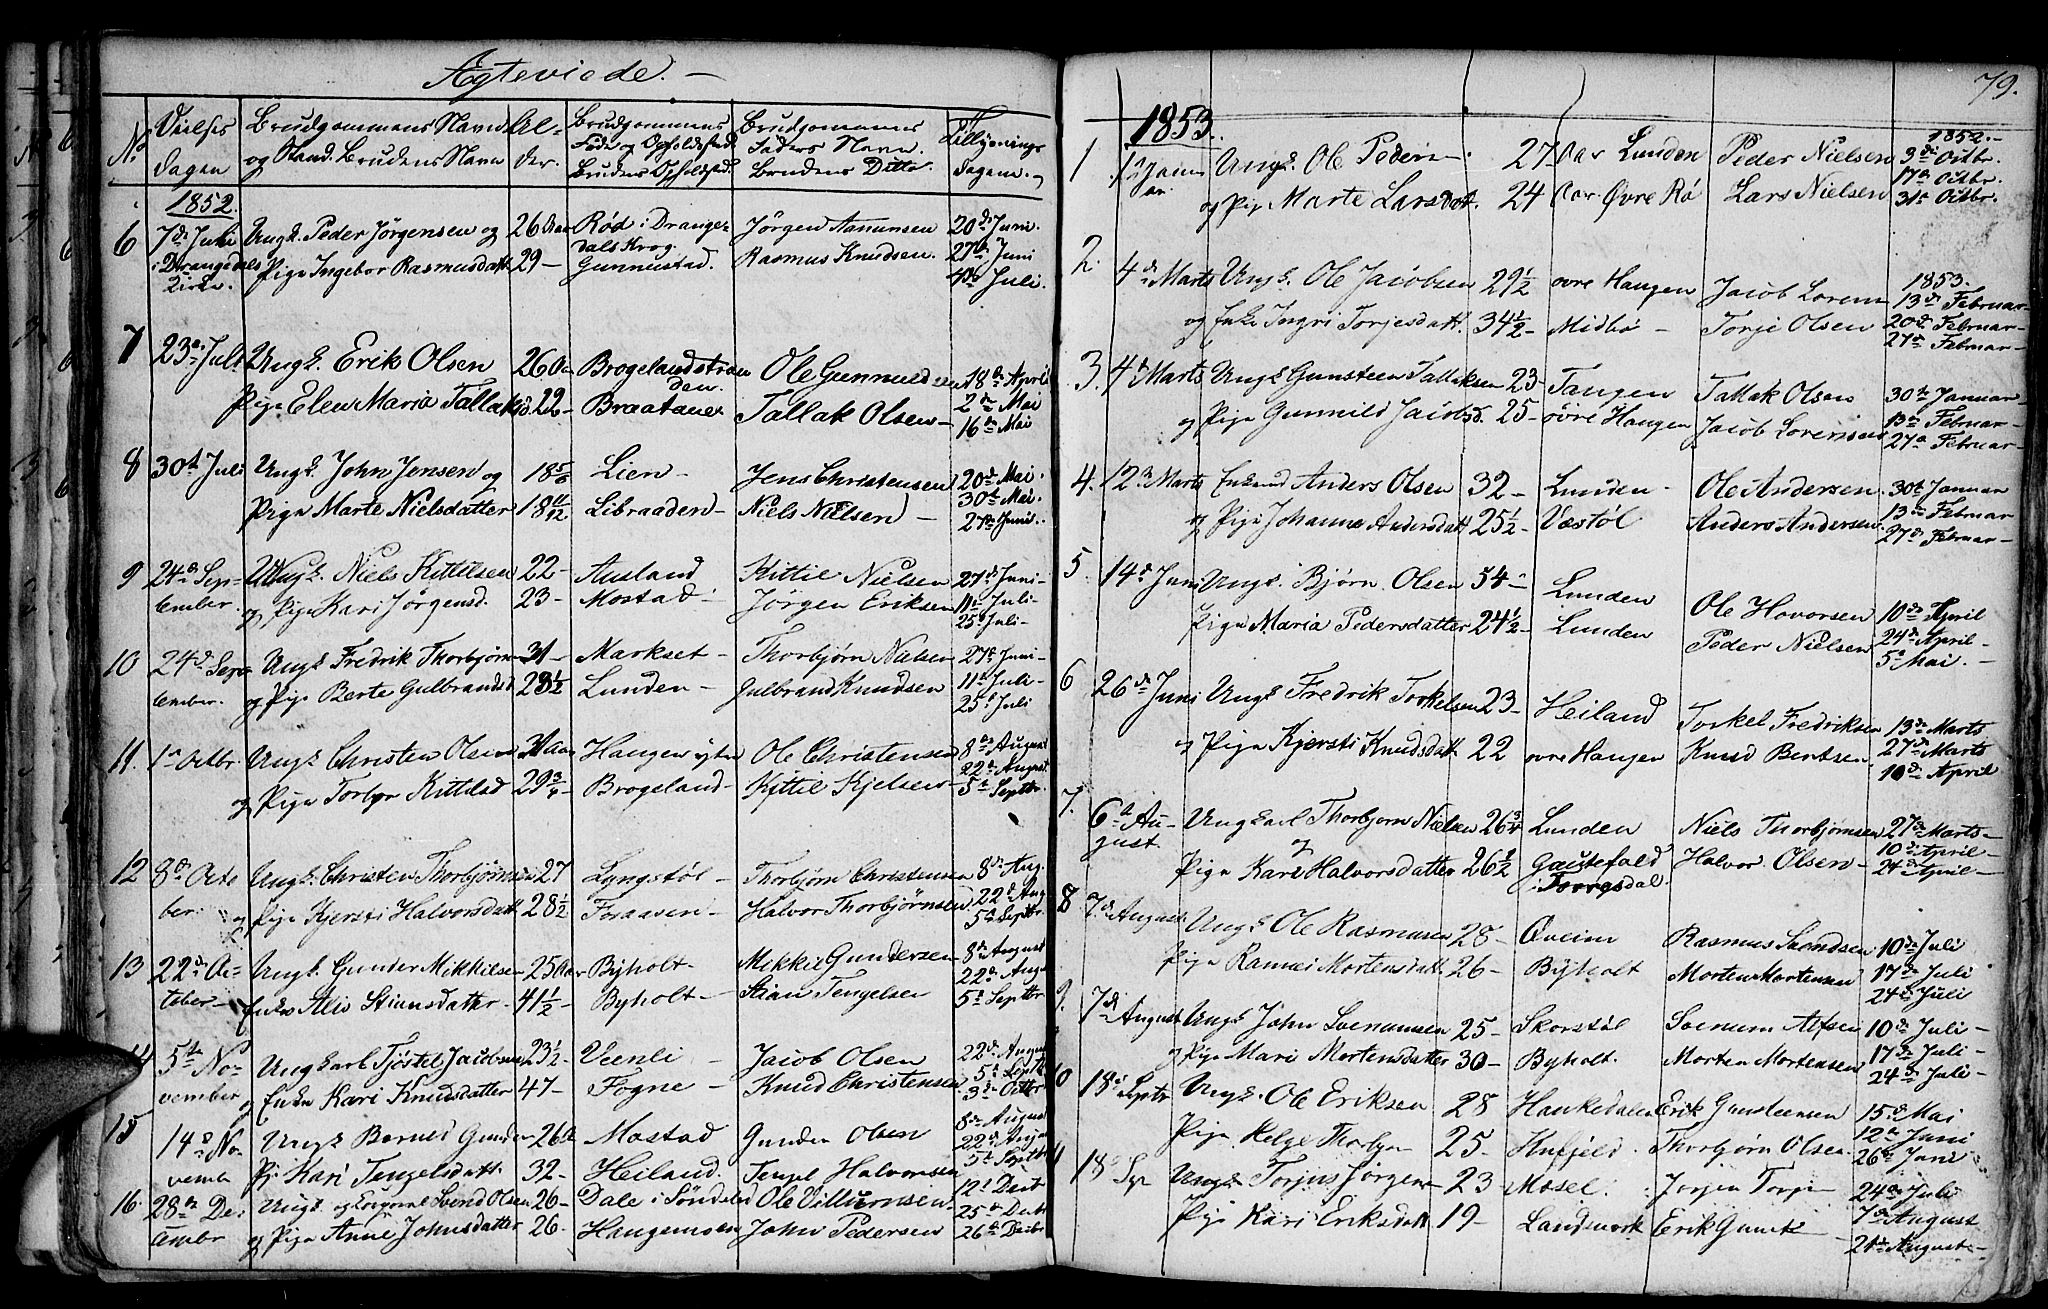 Ægteviede. —
No
Vielses dagen
Brudgommens Navn og Stand. Brudens Navn
Al-der.
Brudgommens Føde og Opholdsted. Brudens Opholdsted.
Brudgommens Faders Navn. Brudens Ditto
Tillysnings dagene.
1852.
6 7de Juli Ungk. Peder Jörgensen og 26 Aar Röd i Drange- Jörgen Asmunsen 20de Juni.
i Drangedals Pige Ingebor Rasmusdatt. 29 — dals Krog. Rasmus Knudsen. 27de Juni
Kirke. Gunnustad. 4de Juli.
7 23de Juli Ungk. Erik Olsen 26 Aar Brogelandstran Ole Gunnuldsen 18de April
Pige Elen Maria Tallaksd. 22 — den. Braatane Tallak Olsen — 2de Mai
16de Mai
8 30te Juli Ungk. John Jensen og 18 5/6 Lien — Jens Christensen 20de Mai.
Pige Marte Nielsdatter 18 11/12 Libraaden — Niels Nielsen — 30te Mai.
27de Juni.
9 24de Sep- Ungk. Niels Kittilsen 22 — Ausland Kittil Nielsen 27de Juni —
tember. og Pige Kari Jörgensd. 23 — Mostad — Jörgen Eriksen 11te Juli —
25de Juli —
10 24de Sep- Ungk. Fredrik Thorbjörn 31 — Markset — Thorbjörn Nielsen 27de Juni —
tember. og Pige Berte Gulbrandsd 28 1/2 Lunden — Gulbrand Knudsen 11te Juli —
25de Juli
11. 1te Octbr. Ungk. Christen Olsen 31 Aar Haugen ytre Ole Christensen 8de August
og Pige Torbjr Kittilsd 29 3/4 — Brogeland — Kittil Kjelsen — 22de August.
5te Septbr.
12 8de Octo Ungk. Christen Thorbjörnsen 27 Lyngstöl — Thorbjörn Christensen 8de Aug.
ber. og Pige Kjersti Halvorsdatt. 28 1/2 Foraaven — Halvor Thorbjörnsen 22de Aug
5te Septbr
13 22de Oc- Ungk. Gunder Mikkilsen 25 Aar Byholt — Mikkil Gundersen 8de August
tober — Enke Alis Stiansdatter — 41 1/2 Byholt — Stian Tengelsen 22de Aug.
5te Septbr
14 5te No- Ungkarl Tjöstel Jacobsen 23 1/2 — Veenli — Jacob Olsen 22de August
vember og Enke Kari Knudsdatter 47 — Fogne — Knud Christensen 5te Septbr
3de Octbr
15 14de No- Ungk. Berned Gunder 26 Mostad Gunder Olsen 8de August
vemb. Pi. Kari Tengelsdatt. 32 — Heiland. Tengel Halvorsen 22de August
5te Septbr
16. 28de De- Ungk. og Svend Olsen 26 — Dale i Söndeled Ole Villumsen — 12te Decbr
cembr og Pige Anne Johnsdatter 26. Haugemoen John Pedersen 25de Decbr
26de Decbr
79.
1853.
1 1te Janu- Ungk. Ole Pedersen 27 Aar Lunden Peder Nielsen 1852. — 3de Octbr.
ar og Pige Marte Larsdatt. 24 Aar Øvre Rø Lars Nielsen 17de Octbr.
31te Octbr.
2. 4de Marts Ungk. Ole Jacobsen 29 1/2 øvre Haugen Jacob Lorens 1853. 13de Februar —
og Enke Ingri Torjesdatt. 34 1/2 — Midbö — Torje Olsen 20de Februar —
27de Februar —
3. 4de Marts Ungk Gunsteen Tallaksen 23 — Tangen Tallak Olsen 30te Januar —
og Pige Gunnild Jacobsd. 25 — øvre Haugen Jacob Lorensen 13de Februar —
27de Februar —
4. 12te Marts Enkmd Anders Olsen 32 — Lunden — Ole Andersen 30te Januar
og Pige Johanne Andersdatt 25 1/2 — Væstöl Anders Andersen. 13de Februar
27de Februar —
5 14de Juni Ungk. Bjørn Olsen 54 — Lunden Ole Hovorsen 10de April
Pige Maria Pedersdatter 24 1/2 — Lunden Peder Nielsen 24de April —
5te Mai. —
6 26de Juni Ungk Fredrik Torkelsen 23 — Heiland Torkel Fredriksen 13de Marts
og Pige Kjersti Knudsdatt 22 øvre Haugen Knud Bentsen 27de Marts
10de April
7. 6te Au- Ungkarl Thorbjørn Nielsen 26 3/4 Lunden Niels Thorbjørnsen 27de Marts —
gust. og Pige Kari Halvorsdatter 26 1/2 Gautefald i Torrisdal. Halvor Olsen — 10de April —
24de April —
8 7de August Ungk Ole Rasmusen 28 — Øveim Rasmus Svendsen 10de Juli
Pige Rannei Mortensdatt. 26 — Byholt Morten Mortensen 17de Juli
24de Juli
9. 7de August Ungk John Svenumsen 25 — Skorstöl Svenum Alfsen 10de Juli —
og Pige Mari Mortensdatter 30 — Byholt. Morten Mortensen 17de Juli —
24de Juli —
10 18de Septbr Ungk. Ole Eriksen 28 Haukedalen Erik Gunsteensen 15de Mai
Pige Helge Thorbjør 25. Hufjeld. Thorbjørn Olsen 12te Juni
26de Juni
11 18de Sep Ungk Torjus Jørgen 23 Mosel. Jørgen Torje 24de Juli
Pige Kari Eriksdatt 19 — Landsverk Erik Gunste — 7de August
21de August —